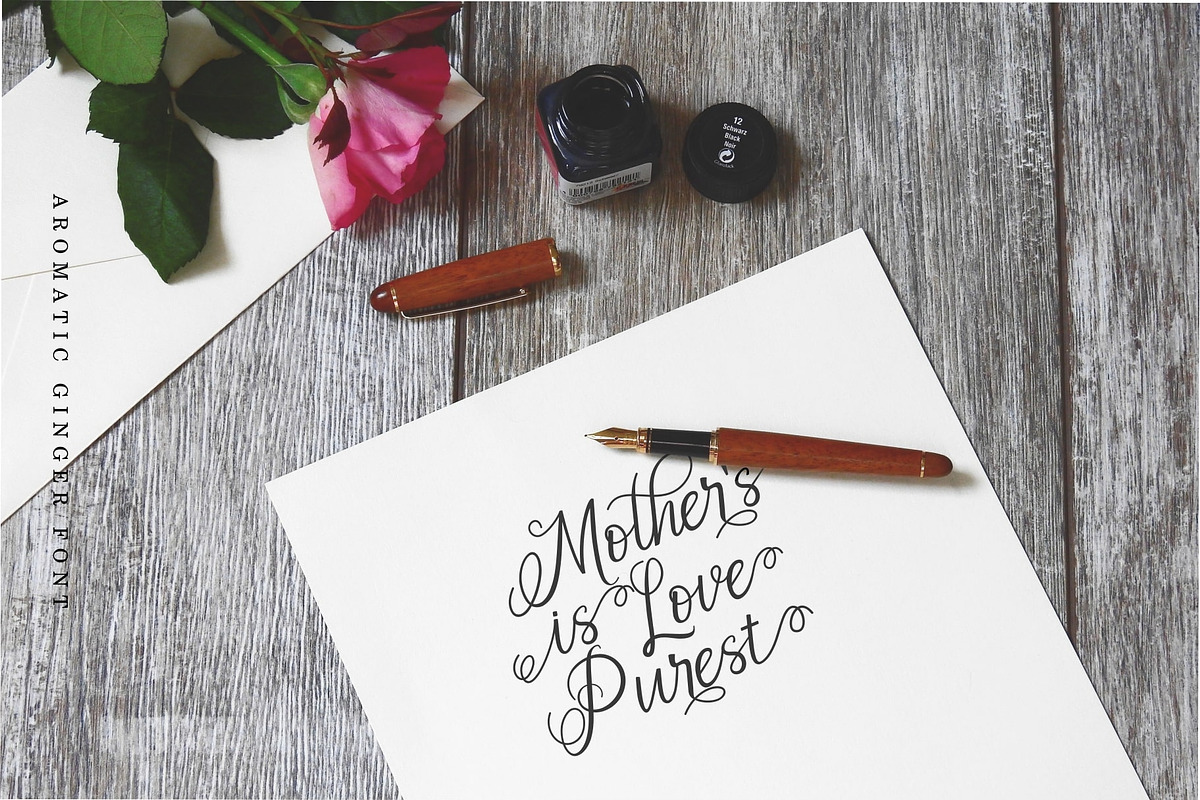 AROMATIC GINGER FONT
12
Schwarz
Black
Noir
Mother's
is Love
Purest